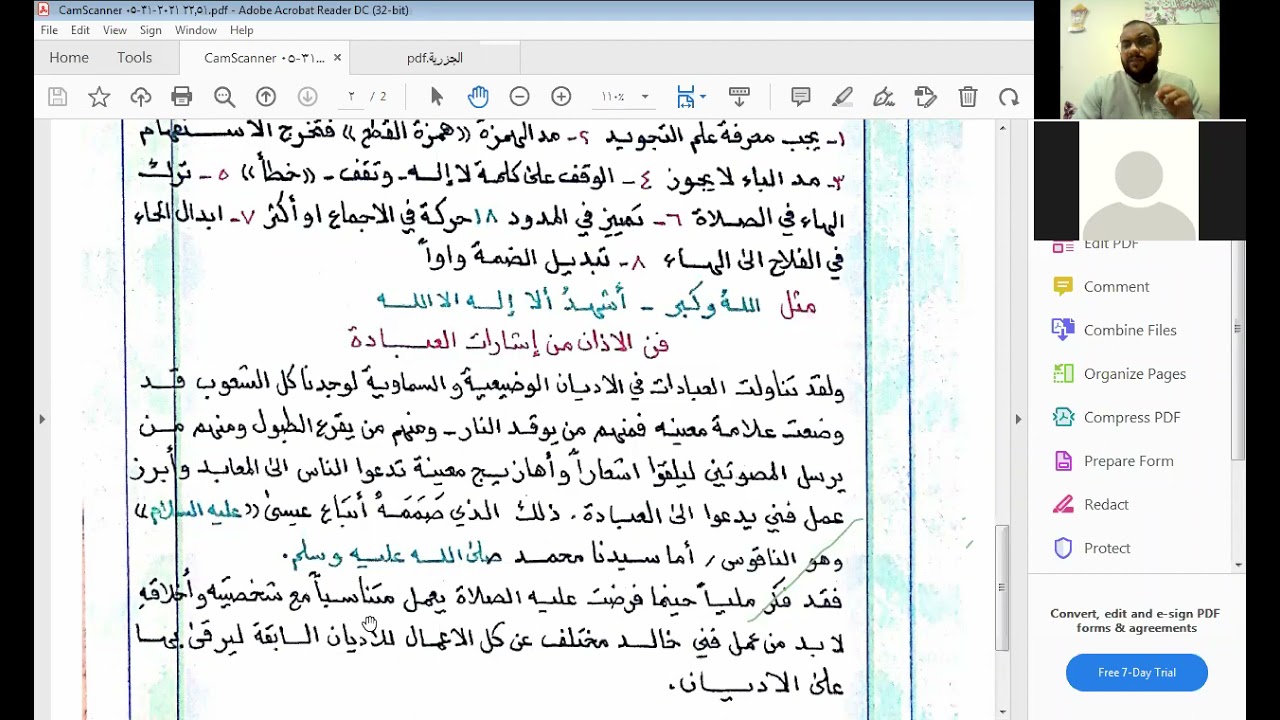 CamScanner ٠٥-٣١-٢٠٢١ ٢٢,٥١.pdf - Adobe Acrobat Reader DC (32-bit)
File Edit View Sign Window Help
Home Tools CamScanner ٠٥-٣١... × الجزرية.pdf
٢ / 2 ١١٠%
١- يجب معرفة علم التجويد ٢- مد الهمزة «همزة القطع» فتخرج الاستفهام
٣- مد الباء لا يجوز ٤- الوقف على كلمة لا إله - وتقف - «خطأ» ٥- ترك
الهاء في الصلاة ٦- تمييز في المدود ١٨ حركة في الاجماع او أكثر ٧- ابدال الحاء
في الفلاح الى الهاء ٨- تبديل الضمة واواً
مثل اللهُ وكبر - أشهدُ ألا إله الا الله
فن الاذان من إشارات العبادة
ولقد تناولت العبادات في الاديان الوضيعية والسماوية لوجدنا كل الشعوب قد
وضعت علامة معينه فمنهم من يوقد النار - ومنهم من يقرع الطبول ومنهم من
يرسل المصوتين ليلقوا اشعاراً وأهازيج معينة تدعوا الناس الى المعابد وأبرز
عمل فني يدعوا الى العبادة. ذلك الذي صَمَمَهُ أتباع عيسىٰ «عليه السلام»
وهو الناقوس / أما سيدنا محمد صلىٰ الله عليه وسلم.
فقد فكر ملياً حينما فرضت عليه الصلاة بعمل متناسباً مع شخصيته وأخلاقهِ
لا بد من عمل فني خالد مختلف عن كل الاعمال للأديان السابقة ليرقىٰ بها
علىٰ الاديان.
Edit PDF
Comment
Combine Files
Organize Pages
Compress PDF
Prepare Form
Redact
Protect
Convert, edit and e-sign PDF
forms & agreements
Free 7-Day Trial